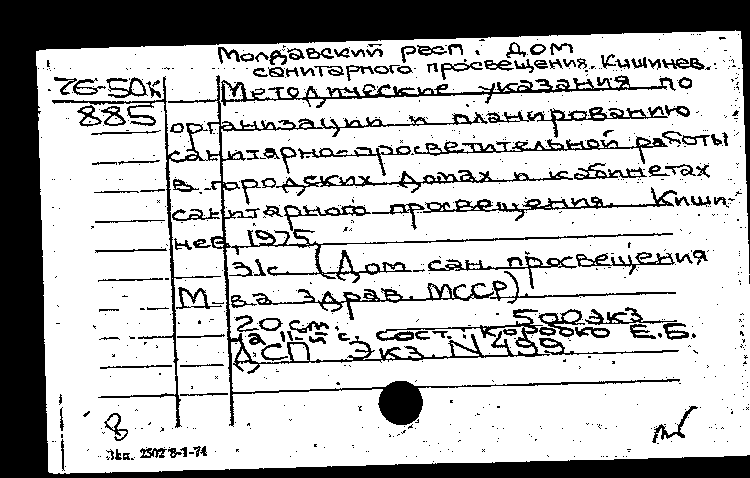 Молдавский респ. дом
санитарного просвещения. Кишинев.
76-50к Методические указания по
885 организации и планированию
санитарно-просветительной работы
в городских домах и кабинетах
санитарного просвещения. Киши-
нев, 1975.
31с. (Дом сан. просвещения
М-ва здрав. МССР).
20 см. 500 экз
На сост.: Коробко Е.Б.
ДСП. Экз. N 499.
8
Зак. 2502 8-1-74